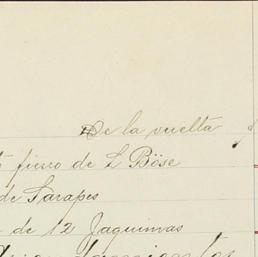 De la vuelta
fierro de L Böse
de Sarapes
de 12 Jaquimas